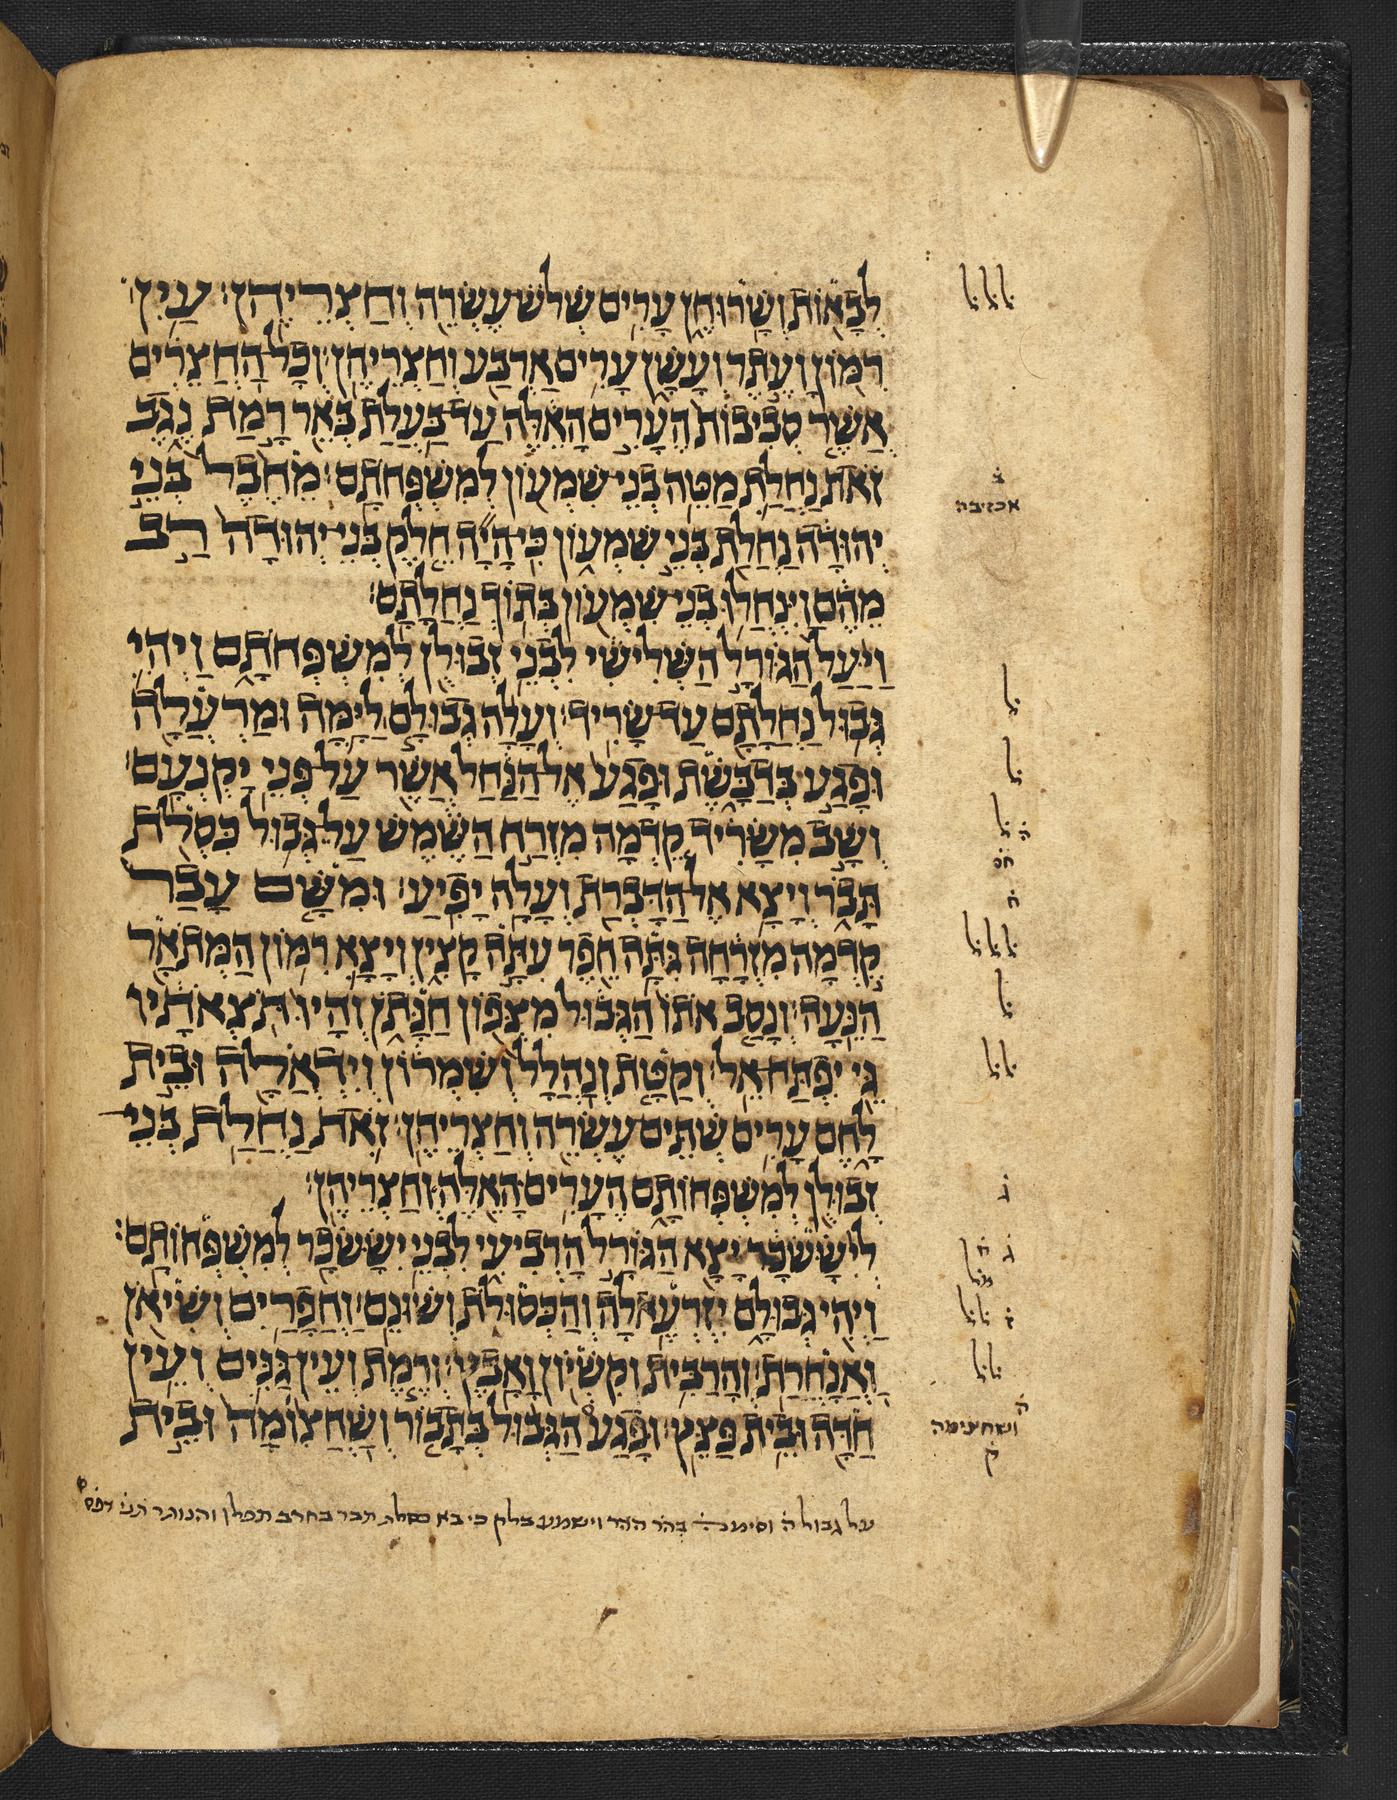 לבאות ושרוחן ערים שלש עשרה וחצריהן׃ עין
רמון ועתר ועשן ערים ארבע וחצריהן׃ וכל החצרים
אשר סביבות הערים האלה עד בעלת באר רמת נגב
זאת נחלת מטה בני שמעון למשפחתם׃ מחבל בני
יהודה נחלת בני שמעון כי היה חלק בני יהודה רב
מהם וינחלו בני שמעון בתוך נחלתם׃
ויעל הגורל השלישי לבני זבולן למשפחתם ויהי
גבול נחלתם עד שריד׃ ועלה גבולם לימה ומרעלה
ופגע בדבשת ופגע אל הנחל אשר על פני יקנעם׃
ושב משריד קדמה מזרח השמש על גבול כסלת
תבר ויצא אל הדברת ועלה יפיע׃ ומשם עבר
קדמה מזרחה גתה חפר עתה קצין ויצא רמון המתאר
הנעה׃ ונסב אתו הגבול מצפון חנתן והיו תצאתיו
גי יפתח אל׃ וקטת ונהלל ושמרון וידאלה ובית
לחם ערים שתים עשרה וחצריהן׃ זאת נחלת בני
זבולן למשפחותם הערים האלה וחצריהן׃
ליששכר יצא הגורל הרביעי לבני יששכר למשפחותם׃
ויהי גבולם יזרעאלה והכסולת ושונם׃ וחפרים ושיאן
ואנחרת׃ והרבית וקשיון ואבץ׃ ורמת ועין גנים ועין
חדה ובית פצץ׃ ופגע הגבול בתבור ושחצומה ובית
ל ל ל
ב
אכזיבה
ל
ל
ל ה
ל ל ל
ל
ל ל
ג
ל ל
ושחצימה
ק
על גבול ה וסימנה בהר ההר וישמע בלק כי בא כסלת תבר בחרב תפלן והנותר